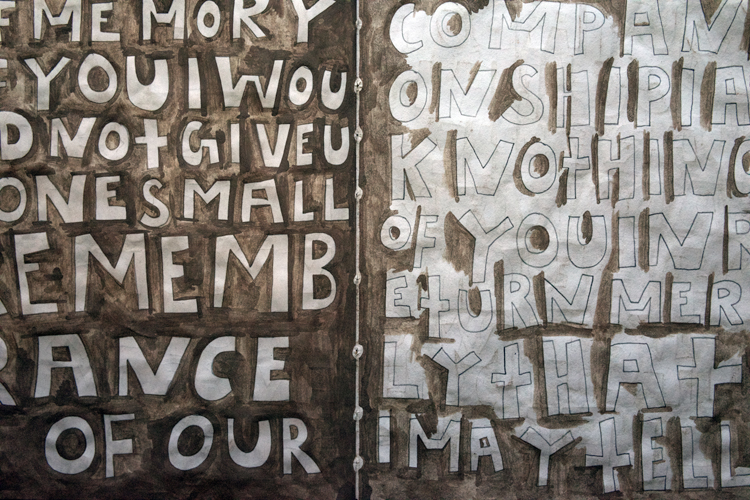 F MEMORY
F YOU I WOU
D NOT GIVE U
ONE SMALL
REMEMB
RANCE
OF OUR
COMPAN
ONSHIP I A
K NOTHING
OF YOU IN R
ETURN MER
LY THAT
I MAY TELL